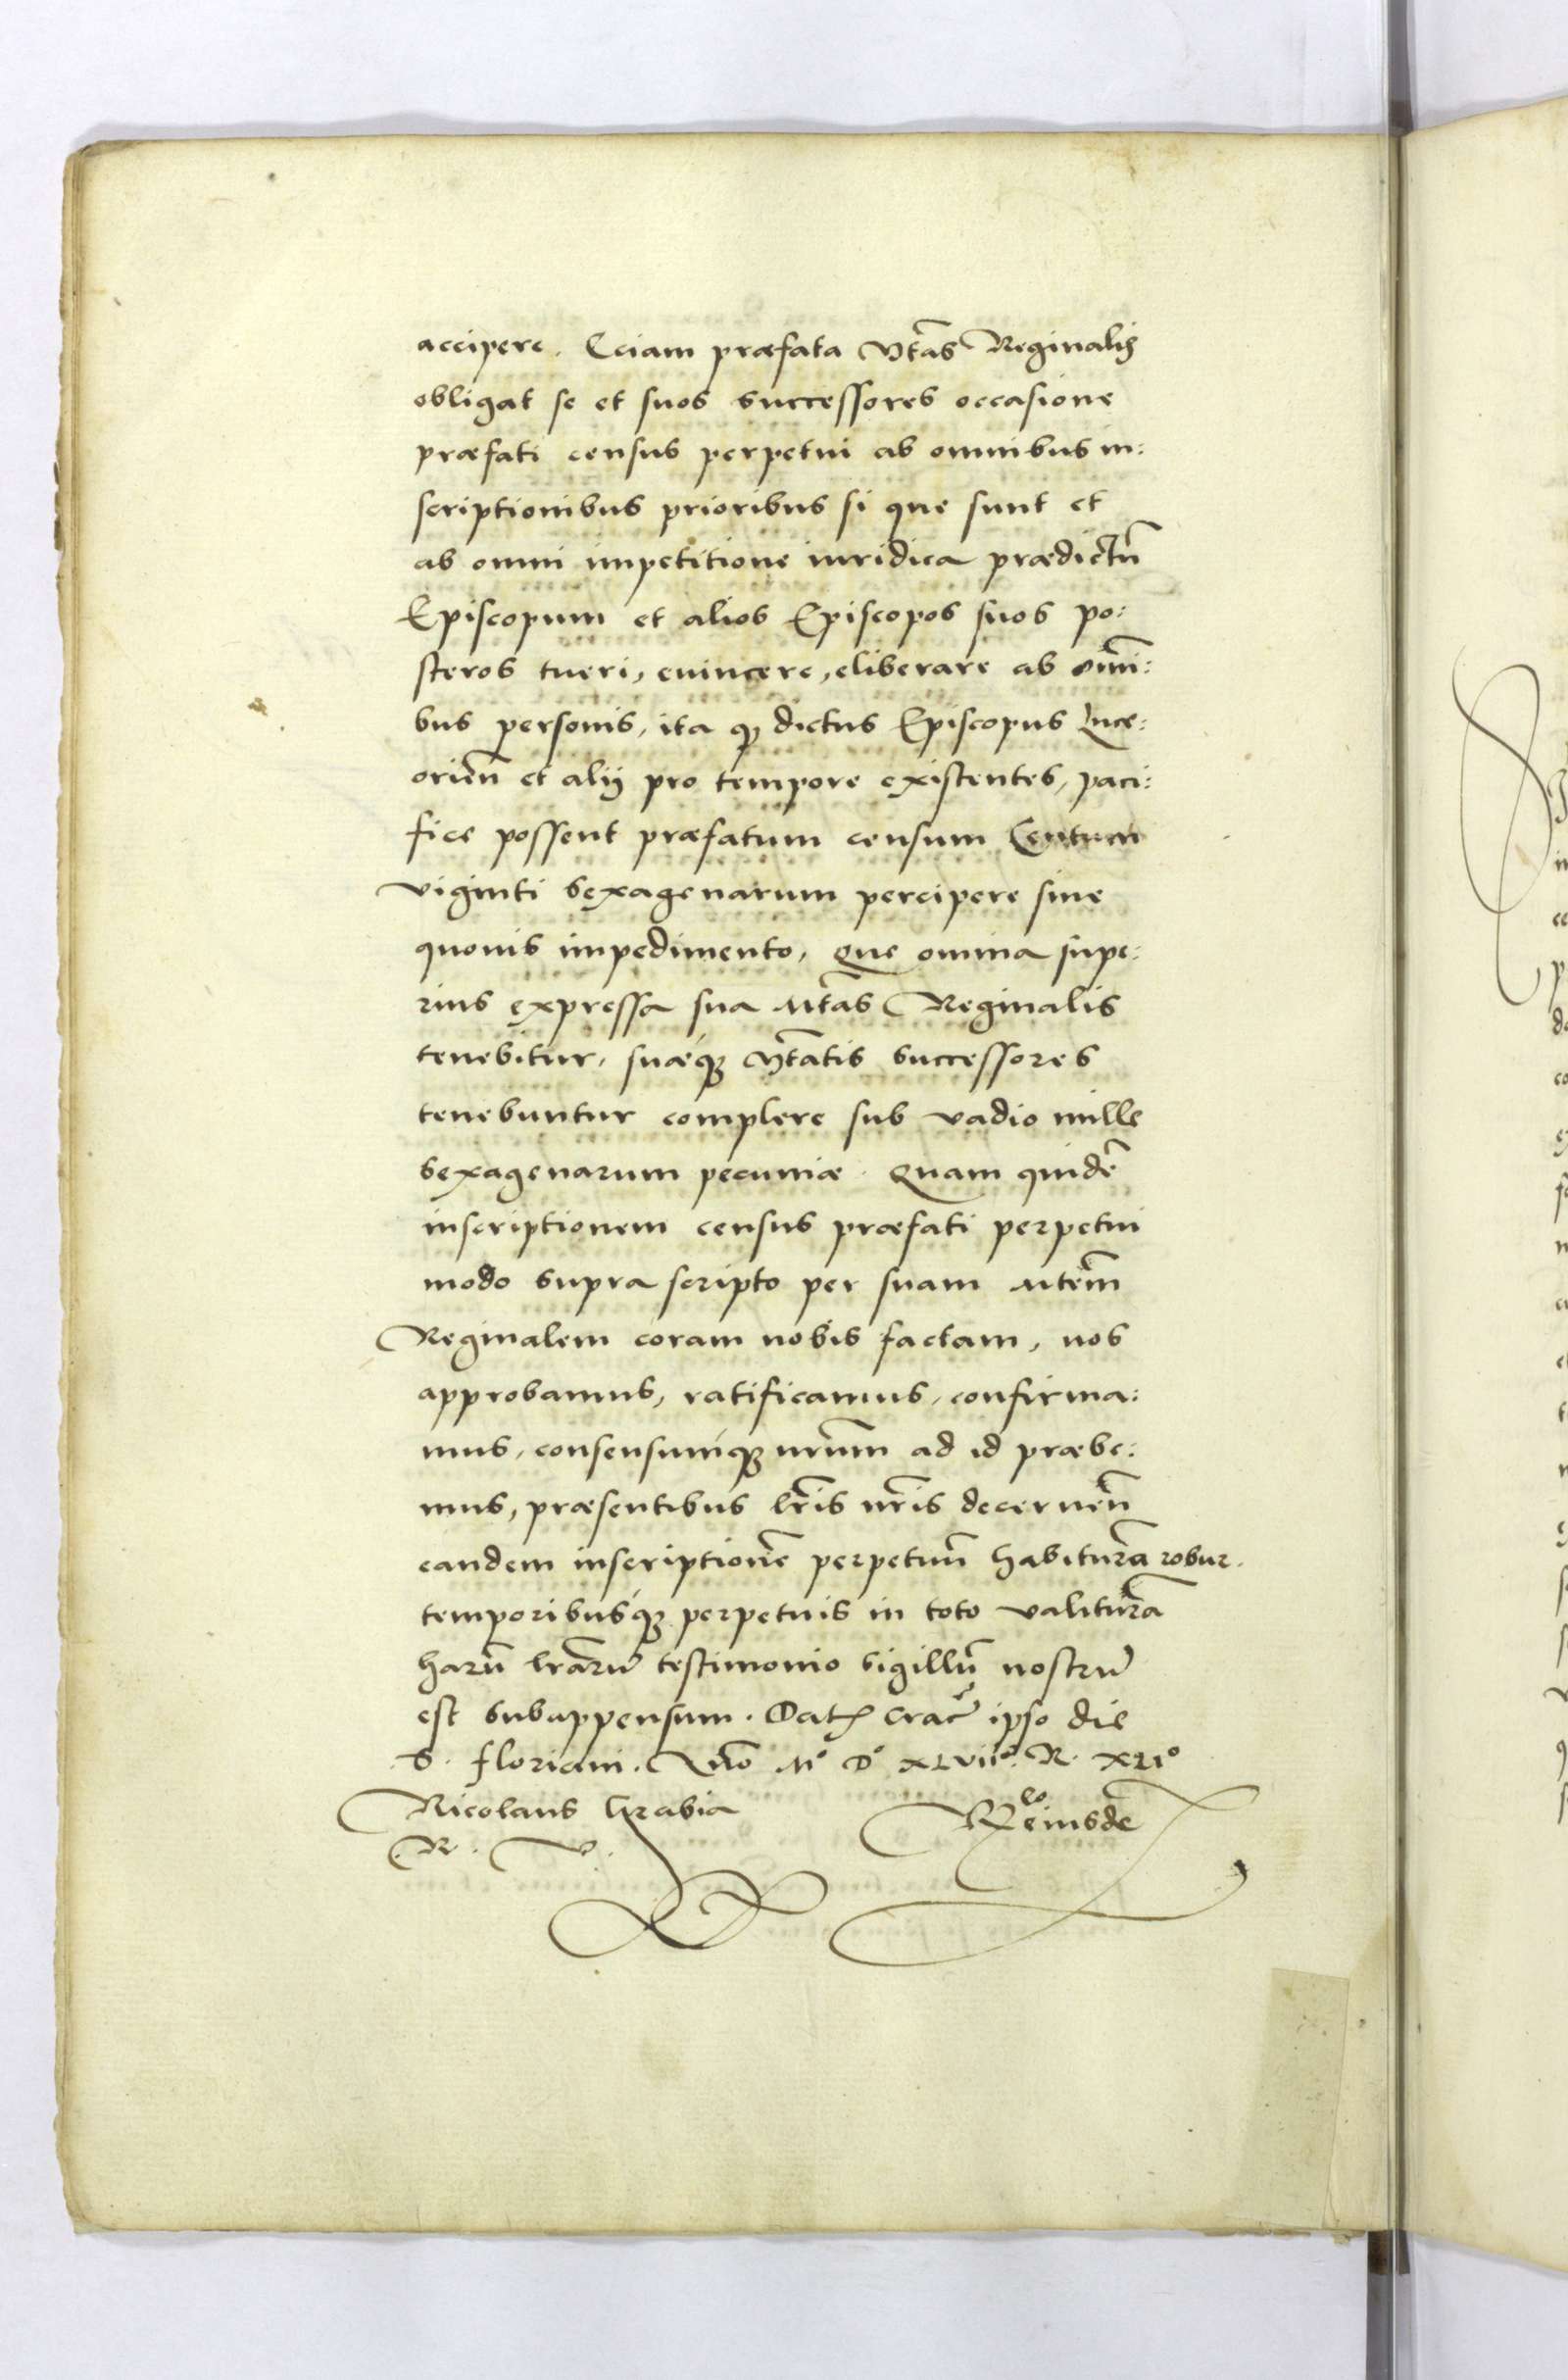 accipere. Eciam præfata Mtas Reginalis
obligat se et suos successores occasione
præfati census perpetui ab omnibus in:
scriptionibus prioribus si que sunt et
ab omni impetitione iuridica prædictū
Episcopum et alios Episcopos suos po:
steros tueri, euincere, eliberare ab om̄i:
bus personis, ita qꝫ dictus Episcopus Luce:
orien̄ et alij pro tempore existentes, paci:
fice possent præfatum censum Centum
viginti sexagenarum percipere sine
quouis impedimento, que omnia supe:
rius expressa sua Mtas Reginalis
tenebitur, suæqꝫ Mtatis successores
tenebuntur complere sub vadio mille
sexagenarum pecuniæ. Quam quidē
inscriptionem census præfati perpetui
modo supra scripto per suam Mtem
Reginalem coram nobis factam, nos
approbamus, ratificamus, confirma:
mus, consensumqꝫ nr̄um ad id præbe:
mus, præsentibus lr̄is nr̄is decernen̄
eandem inscriptionē perpetuū habiturā robur.
temporibusqꝫ perpetuis in toto valiturā
harū lr̄arū testimonio sigillū nostrū
est subappensum. Dat Crac̄ ipso die
S. Floriani. Anno M° D° XLVII°. R. XLI°
Nicolaus hrabia
R. V.